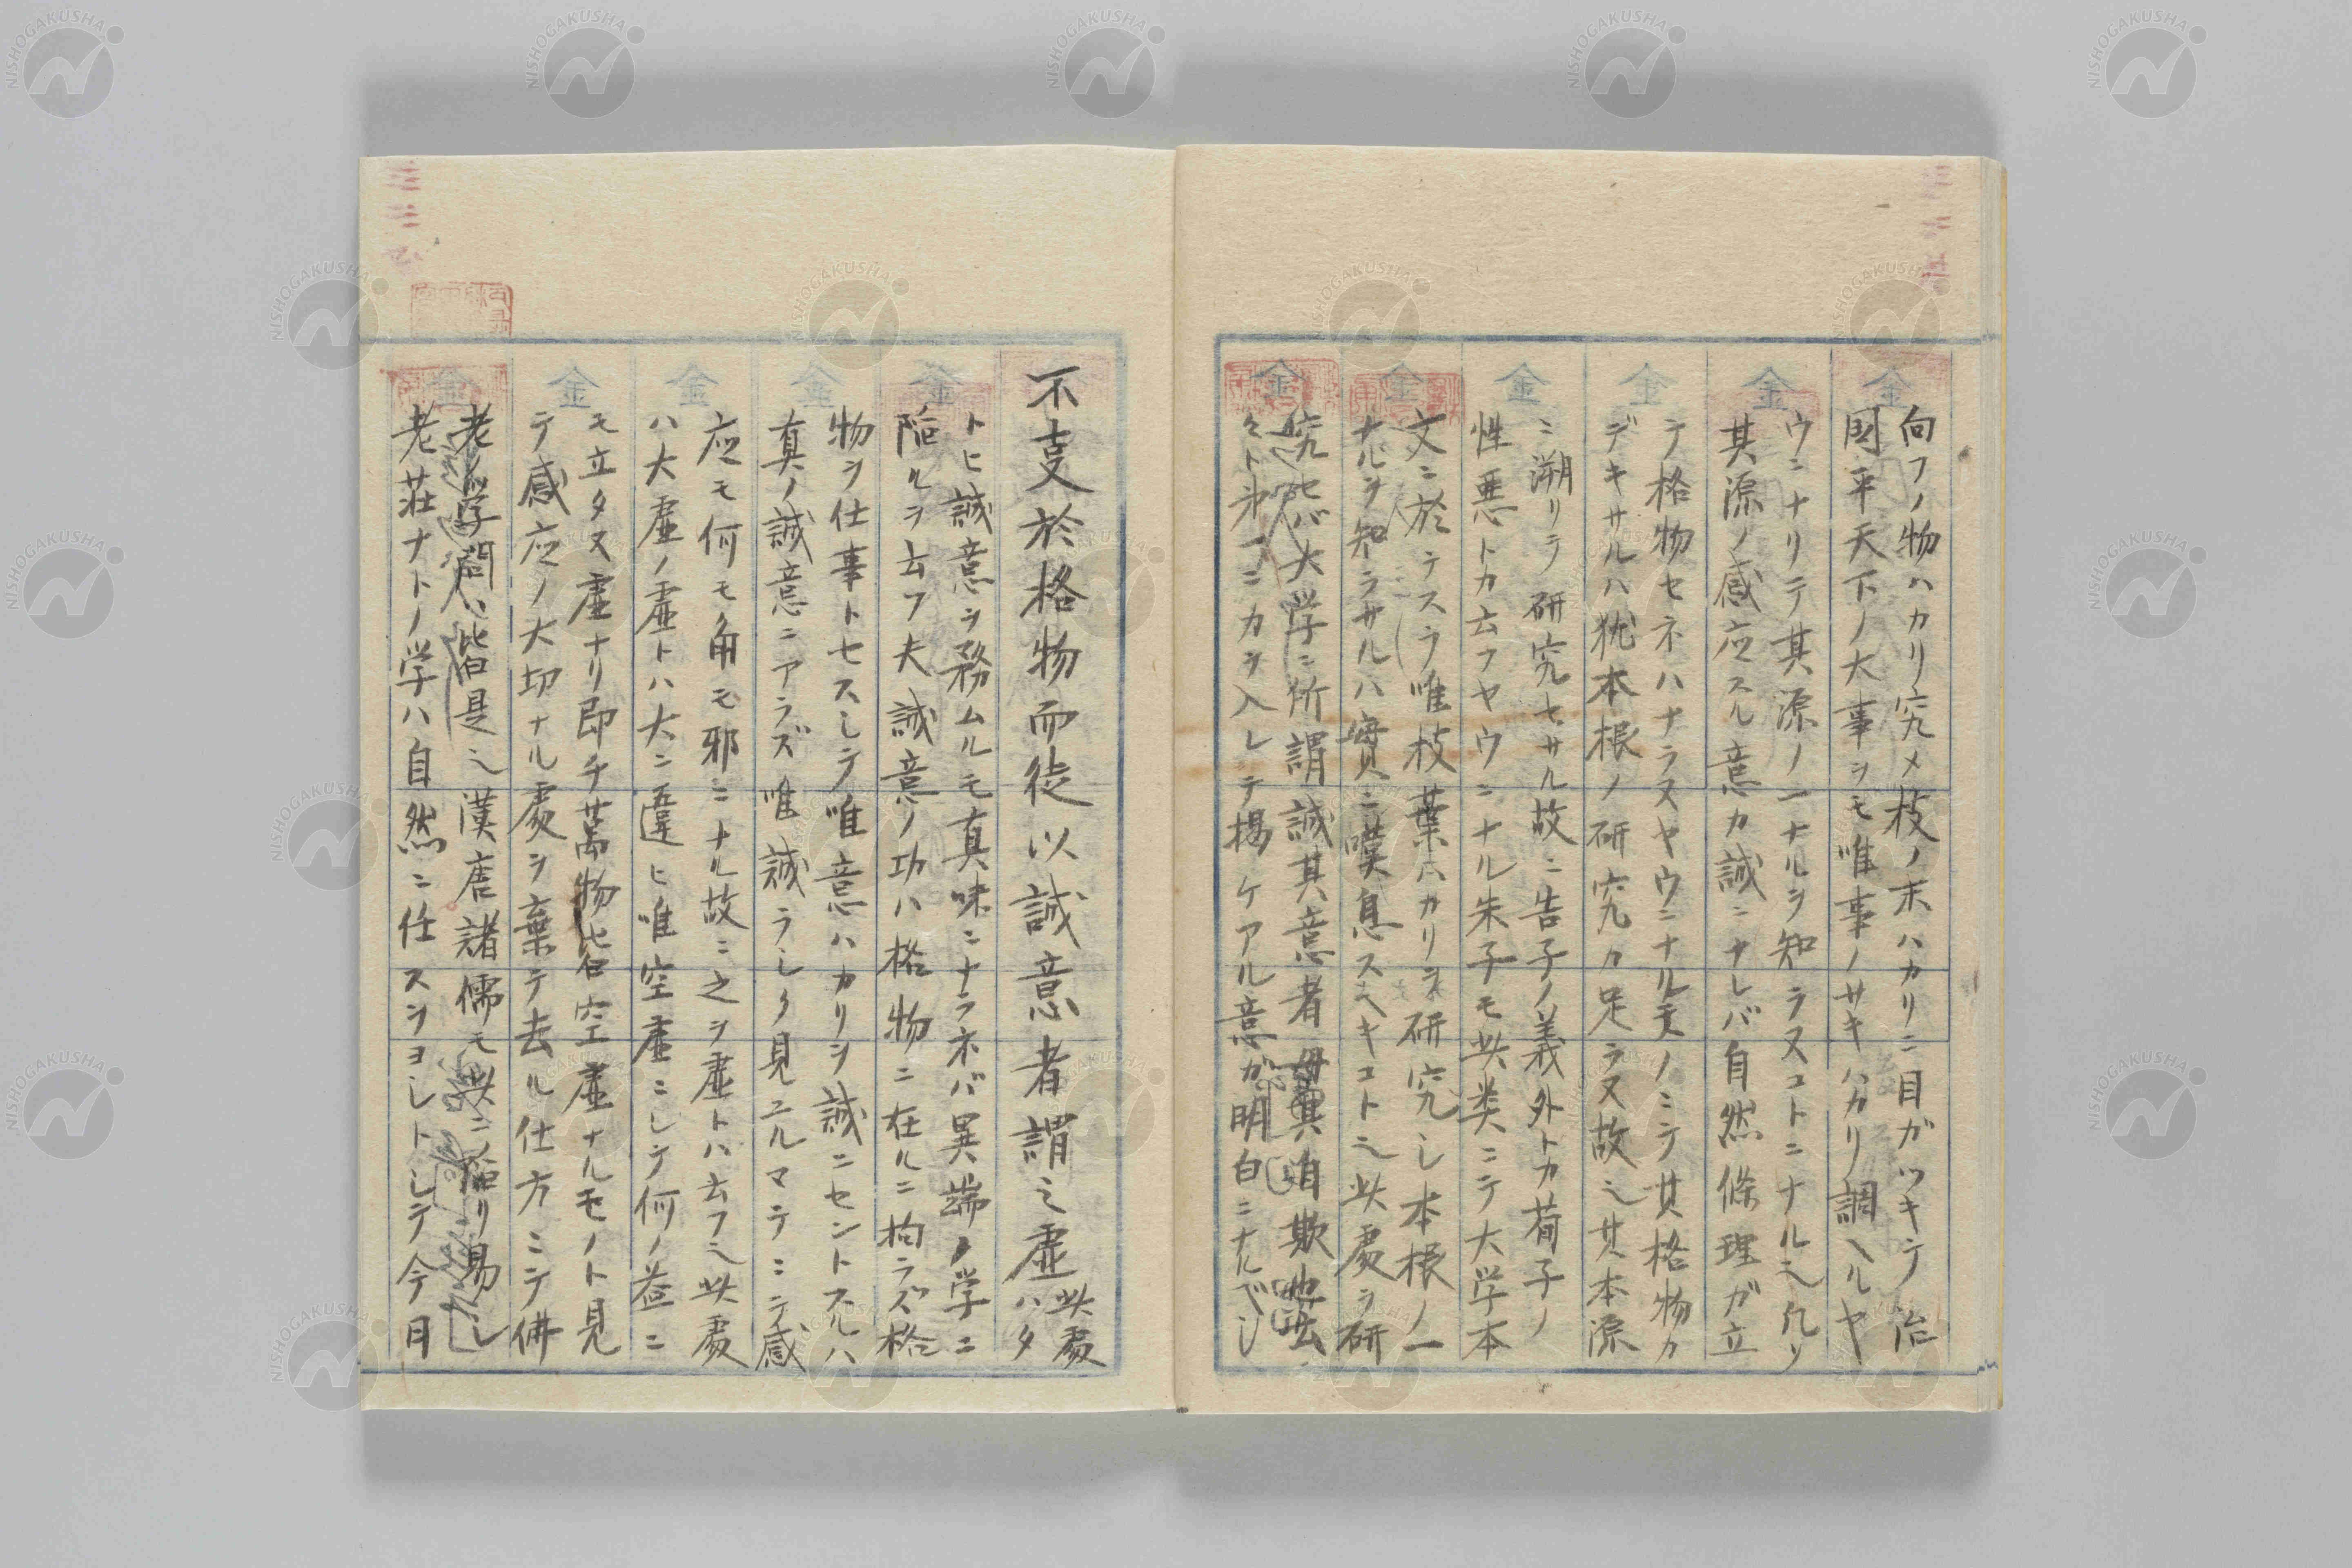 向フノ物ハカリ究メ枝ノ末ハカリニ目ガツキテ治
国平天下ノ大事ヲモ唯事ノサキハカリ調ヘルヤ
ウニナリテ其源ノ一ナルヲ知ラヌコトニナル也凡ソ
其源ノ感応スル意カ誠ニナレバ自然條理ガ立
テ格物セネハナラヌヤウニナル夫ノミテ其格物カ
デキサルハ猶本根ノ研究カ足ラヌ故也其本源
ニ溯リテ研究セサル故ニ告子ノ義外トカ荀子ノ
性悪トカ云フヤウニナル朱子モ此類ニテ大学本
文ニ於テスラ唯枝葉ハカリヲ研究シ本根ノ一
ナルヲ知ラサルハ実ニ嘆息スヘキコト也此處ヲ研
究セバ大学ニ所謂誠其意者毋自欺也云
々ト第一ニカヲ入レテ掲ケアル意ガ明白ニナルベシ
不支於格物而徒以誠意者謂之虚 此處ハタ
トヒ誠意ヲ務ムルモ真味ニナラネバ異端ノ学ニ
陥ルヲ云フ夫誠意ノ功ハ格物ニ在ルニ拘ラズ格
物ヲ仕事トセスシテ唯意ハカリヲ誠ニセントスルハ
真ノ誠意ニアラズ唯誠ラシク見ユルマテニテ感
応モ何モ角モ邪ニナル故ニ之ヲ虚トハ云フ也此處
ハ大虚ノ虚トハ大ニ違ヒ唯空虚ニシテ何ノ益ニ
モ立タヌ虚ナリ即チ萬物皆空虚ナルモノト見
テ感応ノ大切ナル處ヲ棄テ去ル仕方ニテ佛
老ノ学問ハ皆是也漢唐諸儒モ此ニ陥リ易シ
老荘ナトノ学ハ自然ニ任スヲヨシトシテ今日